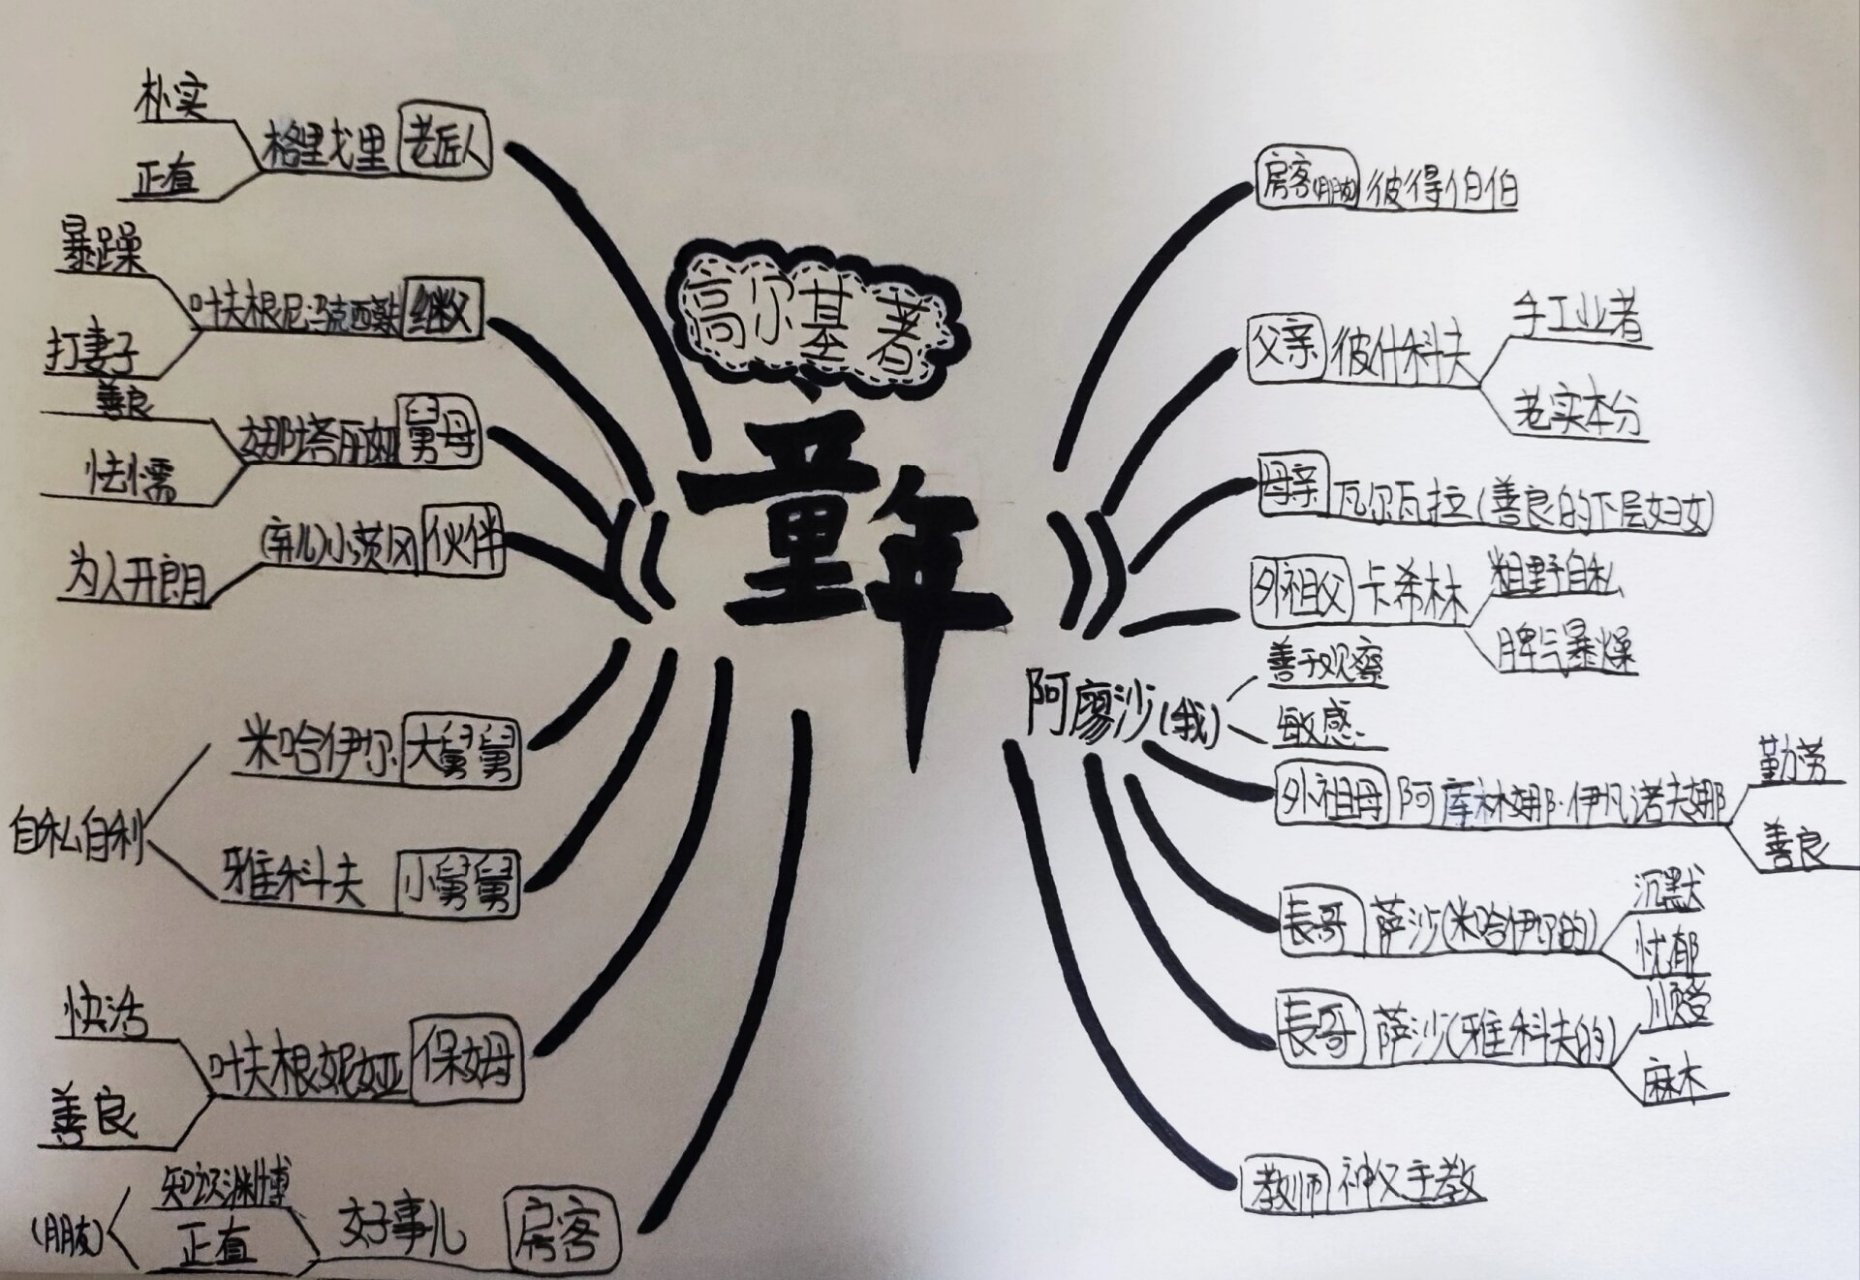 高尔基 著
童年
朴实
正直
格里戈里 老匠人
暴躁
打妻子
叶夫根尼·马克西莫夫 继父
善良
怯懦
娜塔丽娅 舅母
为人开朗
(弃儿)小茨冈 伙伴
自私自利
米哈伊尔 大舅舅
雅科夫 小舅舅
快活
善良
叶夫根妮娅 保姆
(朋友)
知识渊博
正直
好事儿 房客
房客(朋友) 彼得伯伯
父亲 彼什科夫
手工业者
老实本分
母亲 瓦尔瓦拉(善良的下层妇女)
外祖父 卡希林
粗野自私
脾气暴燥
阿廖沙(我)
善于观察
敏感
外祖母 阿库林娜·伊凡诺夫娜
勤劳
善良
表哥 萨沙(米哈伊尔的)
沉默
忧郁
表哥 萨沙(雅科夫的)
顺登
麻木
教师 神父主教